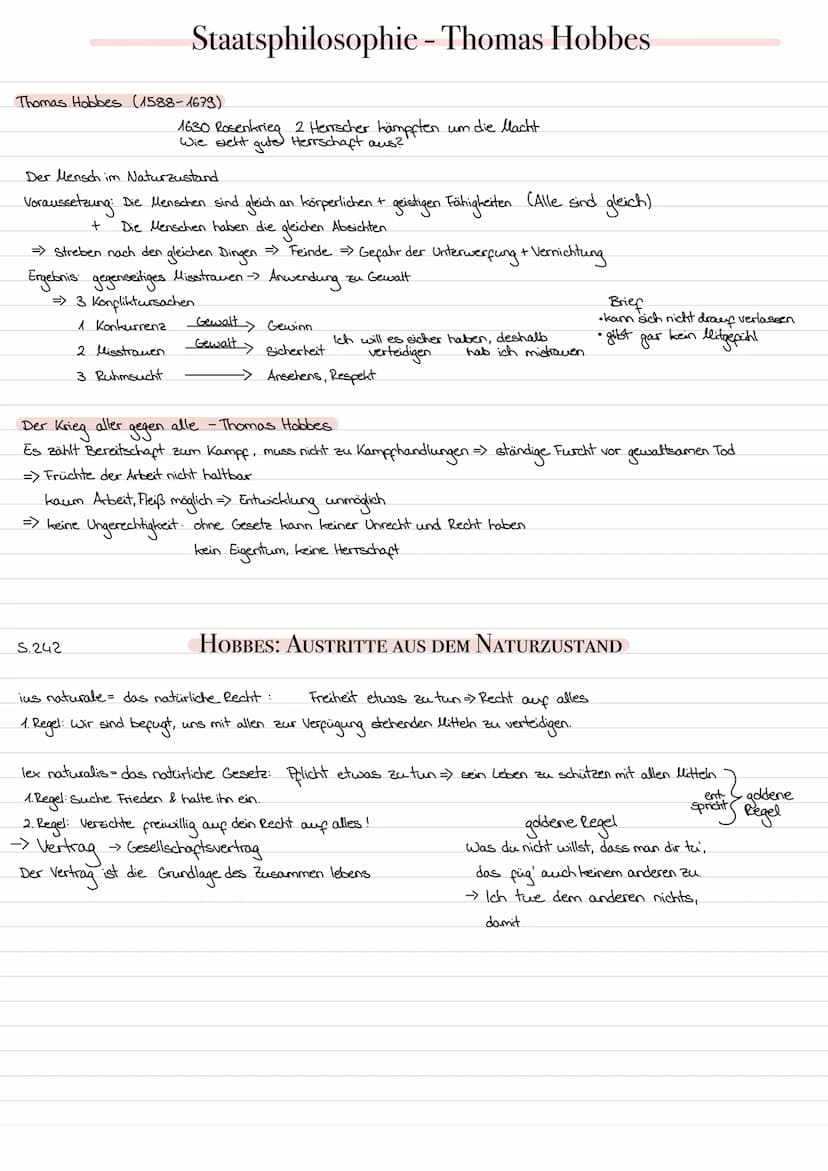 Staatsphilosophie - Thomas Hobbes
Thomas Hobbes (1588-1679)
1630 Rosenkrieg 2 Herrscher kämpften um die Macht
Wie sieht gute Herrschaft aus?
Der Mensch im Naturzustand
Voraussetzung: Die Menschen sind gleich an körperlichen + geistigen Fähigkeiten (Alle sind gleich)
+ Die Menschen haben die gleichen Absichten
=> Streben nach den gleichen Dingen => Feinde => Gefahr der Unterwerfung + Vernichtung
Ergebnis: gegenseitiges Misstrauen -> Anwendung zu Gewalt
=> 3 Konfliktursachen
1 Konkurrenz Gewalt -> Gewinn
2 Misstrauen Gewalt -> Sicherheit Ich will es sicher haben, deshalb verteidigen hab ich mistrauen
3 Ruhmsucht -> Ansehens, Respekt
Brief
• kann sich nicht drauf verlassen
• gibt gar kein Mitgefühl
Der Krieg aller gegen alle - Thomas Hobbes
Es zählt Bereitschaft zum Kampf, muss nicht zu Kampfhandlungen => ständige Furcht vor gewaltsamen Tod
=> Früchte der Arbeit nicht haltbar
kaum Arbeit, Fleiß möglich => Entwicklung unmöglich
=> keine Ungerechtigkeit · ohne Gesetz kann keiner Unrecht und Recht haben
kein Eigentum, keine Herrschaft
S.242
HOBBES: AUSTRITTE AUS DEM NATURZUSTAND
ius naturale = das natürliche Recht : Freiheit etwas zu tun => Recht auf alles
1. Regel: Wir sind befugt, uns mit allen zur Verfügung stehenden Mitteln zu verteidigen.
lex naturalis = das natürliche Gesetz: Pflicht etwas zu tun => sein Leben zu schützen mit allen Mitteln
1. Regel: Suche Frieden & halte ihn ein.
2. Regel: Verzichte freiwillig auf dein Recht auf alles!
ent
spricht
goldene
Regel
-> Vertrag -> Gesellschaftsvertrag
Der Vertrag ist die Grundlage des Zusammen lebens
goldene Regel
Was du nicht willst, dass man dir tu',
das füg' auch keinem anderen zu.
-> Ich tue dem anderen nichts,
damit